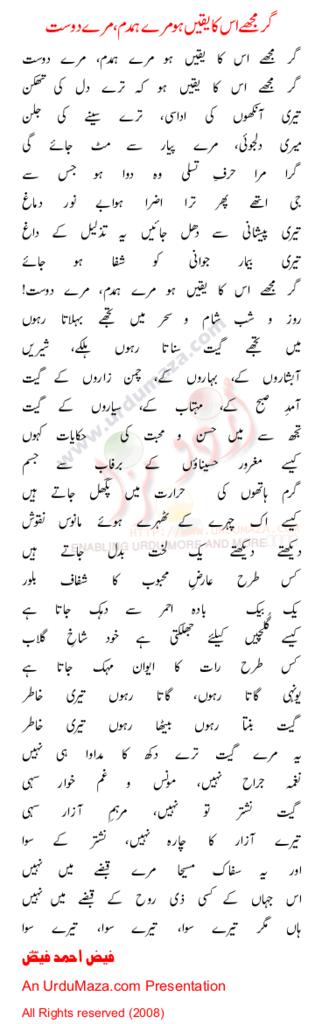 گر مجھے اس کا یقیں ہو مرے ہمدم، مرے دوست
گر مجھے اس کا یقیں ہو مرے ہمدم، مرے دوست
گر مجھے اس کا یقیں ہو کہ ترے دل کی تھکن
تیری آنکھوں کی اداسی، ترے سینے کی جلن
میری دلجوئی، مرے پیار سے مٹ جائے گی
گرا مرا حرفِ تسلی وہ دوا ہو جس سے
جی اٹھے پھر ترا اضرا ہوابے نور دماغ
تیری پیشانی سے دھل جائیں یہ تذلیل کے داغ
تیری بیمار جوانی کو شفا ہو جائے
گر مجھے اس کا یقیں ہو مرے ہمدم، مرے دوست!
روز و شب شام و سحر میں تجھے بہلاتا رہوں
میں تجھے گیت سناتا رہوں ہلکے، شیریں
آبشاروں کے، بہاروں کے، چمن زاروں کے گیت
آمدِ صبح کے، مہتاب کے، سیاروں کے گیت
تجھ سے میں حسن و محبت کی حکایات کہوں
کیسے مغرور حسیناؤں کے برفاب سے جسم
گرم ہاتھوں کی حرارت میں پگھل جاتے ہیں
کیسے اک چہرے کے ٹھہرے ہوئے مانوس نقوش
دیکھتے دیکھتے یک لخت بدل جاتے ہیں
کس طرح عارضِ محبوب کا شفاف بلور
یک بیک بادہ احمر سے دہک جاتا ہے
کیسے گلچیں کیلئے جھلکتی ہے خود شاخِ گلاب
کس طرح رات کا ایوان مہک جاتا ہے
یونہی گاتا رہوں، گاتا رہوں تیری خاطر
گیت بنتا رہوں بیٹھا رہوں تیری خاطر
یہ مرے گیت ترے دکھ کا مداوا ہی نہیں
نغمہ جراح نہیں، مونس و غم خوار سہی
گیت نشتر تو نہیں، مرہمِ آزار سہی
تیرے آزار کا چارہ نہیں، نشتر کے سوا
اور یہ سفاک مسیحا مرے قبضے میں نہیں
اس جہاں کے کسی ذی روح کے قبضے میں نہیں
ہاں مگر تیرے سوا، تیرے سوا، تیرے سوا
فیض احمد فیض
An UrduMaza.com Presentation
All Rights reserved (2008)
www.urdumaza.com
HTTP://WWW.URDUMAZA.COM
ENABLING URDU MORE AND MORE !!!